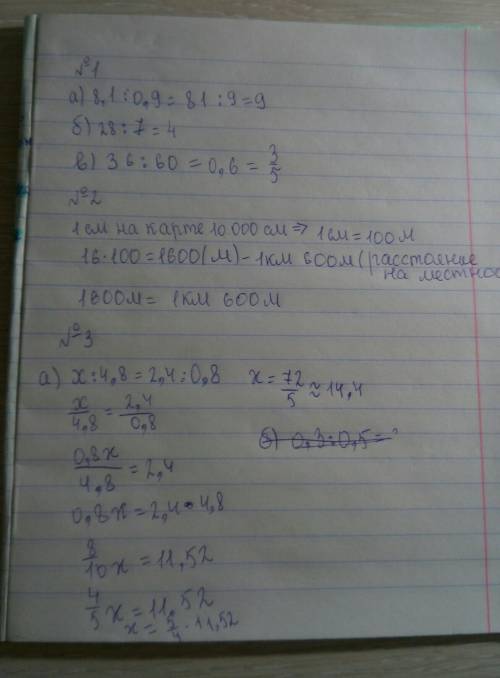 №1
а) 8,1 : 0,9 = 81 : 9 = 9
б) 28 : 7 = 4
в) 36 : 60 = 0,6 = 3/5
№2
1 см на карте 10 000 см ⇒ 1 см = 100 м
16 · 100 = 1600 (м) - 1 км 600 м (расстояние
на местнос
1600 м = 1 км 600 м
№3
а) x : 4,8 = 2,4 : 0,8
x/4,8 = 2,4/0,8
0,8x/4,8 = 2,4
0,8x = 2,4 · 4,8
8/10 x = 11,52
4/5 x = 11,52
x = 5/4 · 11,52
x = 72/5 ≈ 14,4
б) 0,3 : 0,5 =